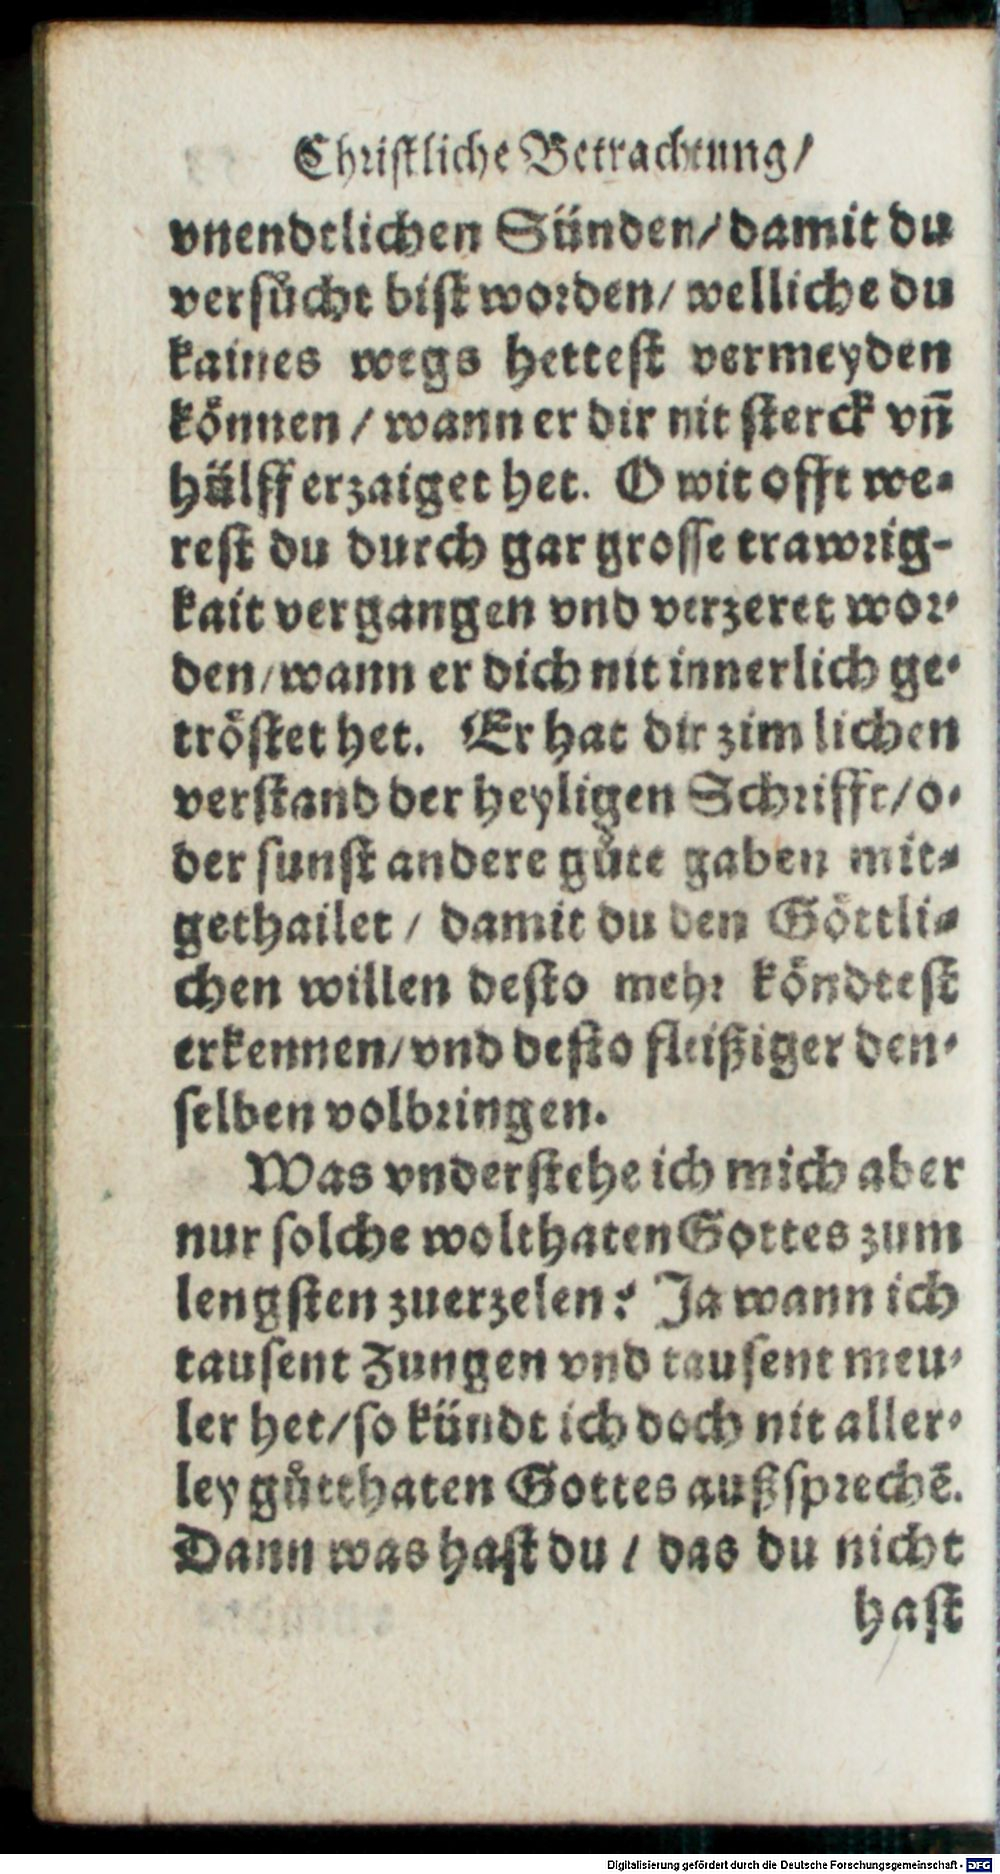 Christliche Betrachtung/
vnendtlichen Sünden/ damit du
versůcht bist worden/ welliche du
kaines wegs hettest vermeyden
können / wann er dir nit sterck vñ
hülff erzaiget het. O wit offt we-
rest du durch gar grosse trawrig-
kait vergangen vnd verzeret wor-
den/ wann er dich nit innerlich ge-
tröstet het. Er hat dir zimlichen
verstand der heyligen Schrifft/ o-
der sunst andere gůte gaben mit-
gethailet / damit du den Göttli-
chen willen desto mehr köndtest
erkennen/ vnd desto fleißiger den-
selben volbringen.
Was vnderstehe ich mich aber
nur solche wolthaten Gottes zum
lengsten zuerzelen? Ja wann ich
tausent Zungen vnd tausent meu-
ler het/ so kündt ich doch nit aller-
ley gůtthaten Gottes außsprechē.
Dann was hast du / das du nicht
hast
Digitalisierung gefördert durch die Deutsche Forschungsgemeinschaft - DFG